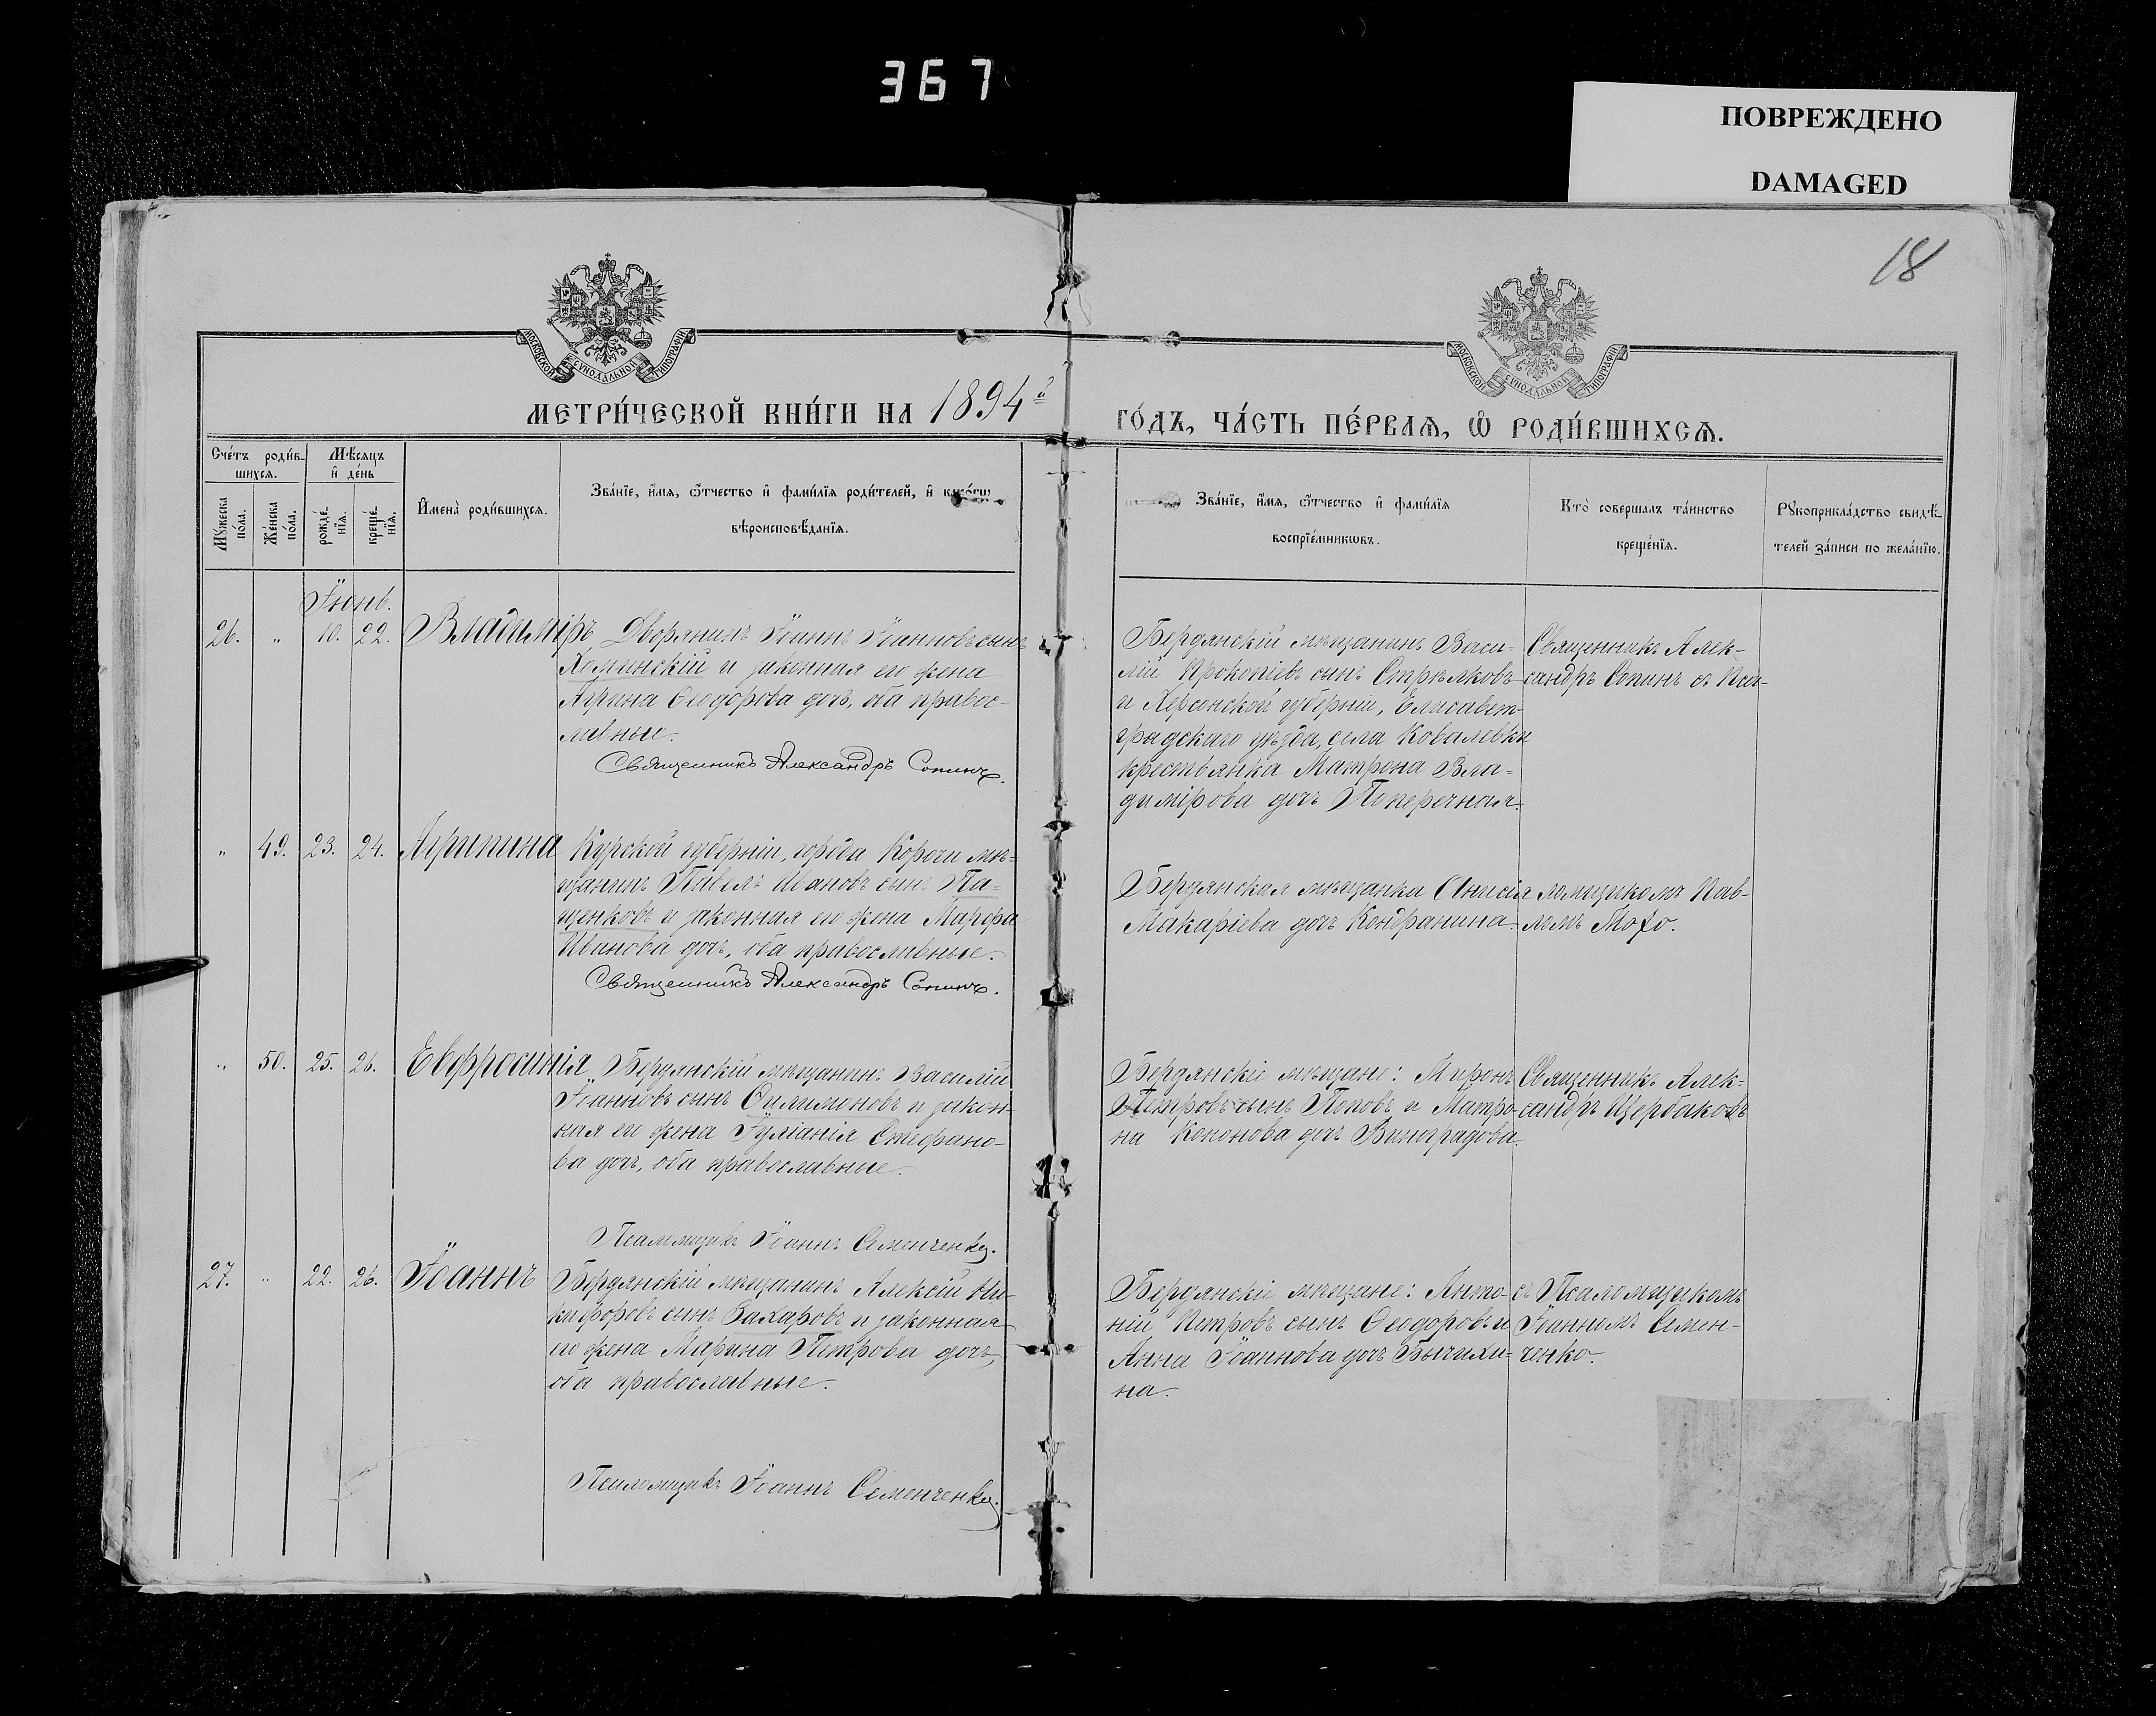 367
ПОВРЕЖДЕНО
DAMAGED
18
МОСКОВСКОЙ СѴНОДАЛЬНОЙ ТИПОГРАФІИ
МОСКОВСКОЙ СѴНОДАЛЬНОЙ ТИПОГРАФІИ
МЕТРИ́ЧЕСКОЙ КНИ́ГИ НА 1894 г
ГО́ДЪ, ЧА́СТЬ ПЕ́РВАѦ, Ѡ РОДИ́ВШИХСѦ.
Сче́тъ роди́в-
шихсѧ.
Мѣ́сѧцъ
и де́нь
Мꙋ́жеска по́ла.
Же́нска по́ла.
рожде́нїѧ.
креще́нїѧ.
И҆мена̀ роди́вшихсѧ.
Зва́нїе, и҆́мѧ, ѻ҆́тчество и҆ фами́лїѧ роди́телей, и҆ како́гѡ
вѣроисповѣ́данїѧ.
Зва́нїе, и҆́мѧ, ѻ҆́тчество и҆ фами́лїѧ
воспрїе́мникѡвъ.
Кто̀ соверша́лъ та́инство
креще́нїѧ.
Рꙋкоприкла́дство свидѣ́-
телей за́писи по жела́нїю.
Іюнь.
26. „ 10. 22. Владиміръ Дворянинъ Іоаннъ Іоанновъ сынъ
Хоминскій и законная его жена
Ирина Ѳеодорова дочь, оба правос-
лавные.
Священникъ Александръ Сопинъ.
Бердянскій мѣщанинъ Васи-
лій Прокопіевъ сынъ Стрѣлковъ
и Херсонской губерніи, Елисавет-
градскаго уѣзда, села Ковалевки
крестьянка Матрона Вла-
димірова дочь Поперечная.
Священникъ Алек-
сандръ Сопинъ съ Пса-
„ 49. 23. 24. Агрипина Курской губерніи, города Корочи мѣ-
щанинъ Павелъ Ивановъ сынъ Па-
щенковъ и законная его жена Марѳа
Иванова дочь, оба православные.
Священникъ Александръ Сопинъ.
Бердянская мѣщанка Анисія
Макаріева дочь Кондранина.
ломщикомъ Пав-
ломъ
„ 50. 25. 26. Евфросинія Бердянскій мѣщанинъ Василій
Іоанновъ сынъ Филимоновъ и закон-
ная его жена Іуліанія Стефано-
ва дочь, оба православные.
Псаломщикъ Іоаннъ Семенченко.
Бердянскіе мѣщане: Миронъ
Петровъ сынъ Поповъ и Матро-
на Кононова дочь Виноградова.
Священникъ Алек-
сандръ Щербаковъ
27. „ 22. 26. Іоаннъ Бердянскій мѣщанинъ Алексій Ни-
кифоровъ сынъ Захаровъ и законная
его жена Марина Петрова дочь,
оба православные.
Псаломщикъ Іоаннъ Семенченко.
Бердянскіе мѣщане: Анто-
ній Петровъ сынъ Ѳеодоровъ и
Анна Іоаннова дочь Бычихи-
на.
съ Псаломщикомъ
Іоанномъ Семен-
ченко.